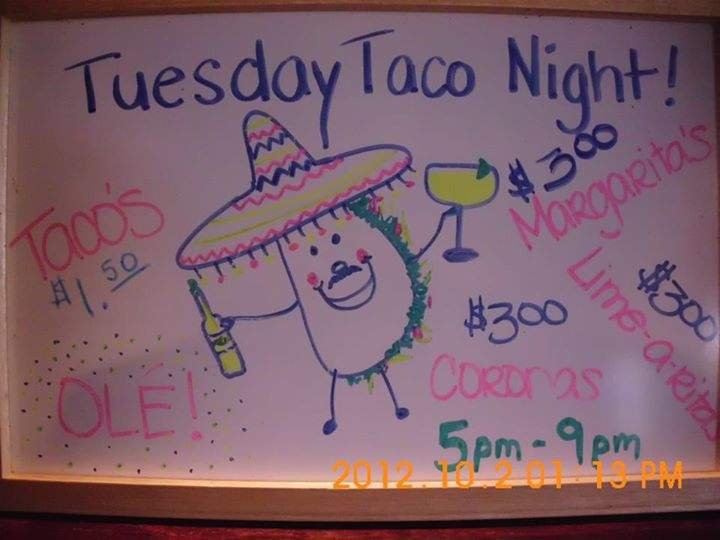 Tuesday Taco Night!
TACO'S
$1.50
$3.00
MARGARITA'S
$300
Lime-a-Ritas
$300
CORONAS
OLÉ!
5pm-9pm
2012.10.2 01:13 PM